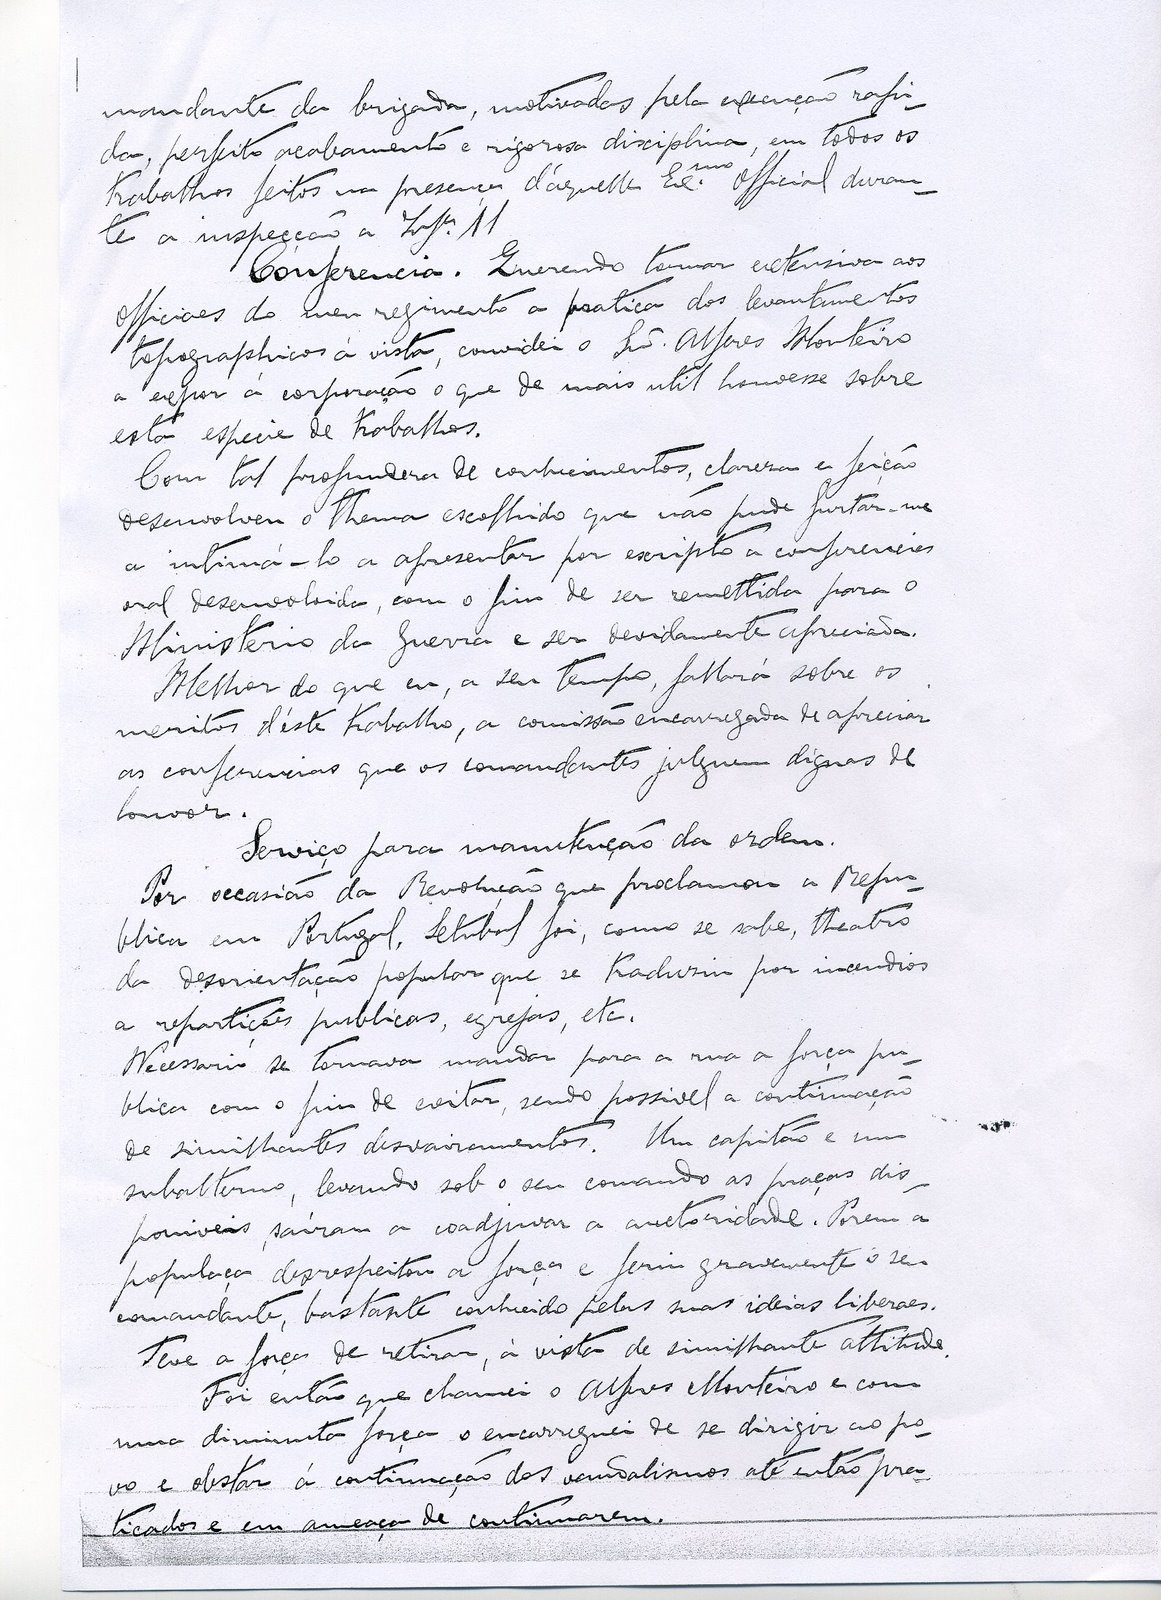 mandante da brigada, motivadas pela execução rapi-
da, perfeito acabamento e rigorosa disciplina, em todos os
trabalhos feitos na presença d'aquelle Ex.mo Official duran-
te a inspecção a Inf.ª 11
Conferencia. Querendo tornar extensiva aos
officiaes do meu regimento a pratica dos levantamentos
topographicos á vista, convidei o Snr. Alferes Monteiro
a expor á corporação o que de mais util houvesse sobre
esta especie de trabalhos.
Com tal profundeza de conhecimentos, clareza e feição
desenvolveu o thema escolhido que não pude furtar-me
a intimá-lo a apresentar por escripto a conferencia
oral desenvolvida, com o fim de ser remettida para o
Ministerio da Guerra e ser devidamente apreciada.
Melhor do que eu, a seu tempo, fallará sobre os
meritos d'este trabalho, a comissão encarregada de apreciar
as conferencias que os comandantes julguem dignas de
louvor.
Serviço para manutenção da ordem.
Por occasião da Revolução que proclamou a Repu-
blica em Portugal, Setubal foi, como se sabe, theatro
da desorientação popular que se traduziu por incendios
a repartições publicas, egrejas, etc.
Necessario se tornava mandar para a rua a força pu-
blica com o fim de evitar, sendo possivel a continuação
de similhantes desvairamentos. Um capitão e um
subalterno, levando sob o seu comando as praças dis-
poniveis, saíram a coadjuvar a auctoridade. Porem a
populaça desrespeitou a força e feriu gravemente o seu
comandante, bastante conhecido pelas suas ideias liberaes.
Teve a força de retirar, á vista de similhante attitude.
Foi então que chamei o Alferes Monteiro e com
uma diminuta força o encarreguei de se dirigir ao po-
vo e obstar á continuação dos vandalismos até então pra-
ticados e em ameaça de continuarem.